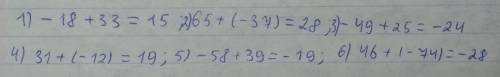 1) - 18 + 33 = 15 ; 2) 65 + (-37) = 28 ; 3) - 49 + 25 = - 24
4) 31 + (-12) = 19 ; 5) - 58 + 39 = - 19 ; 6) 46 + (-74) = - 28